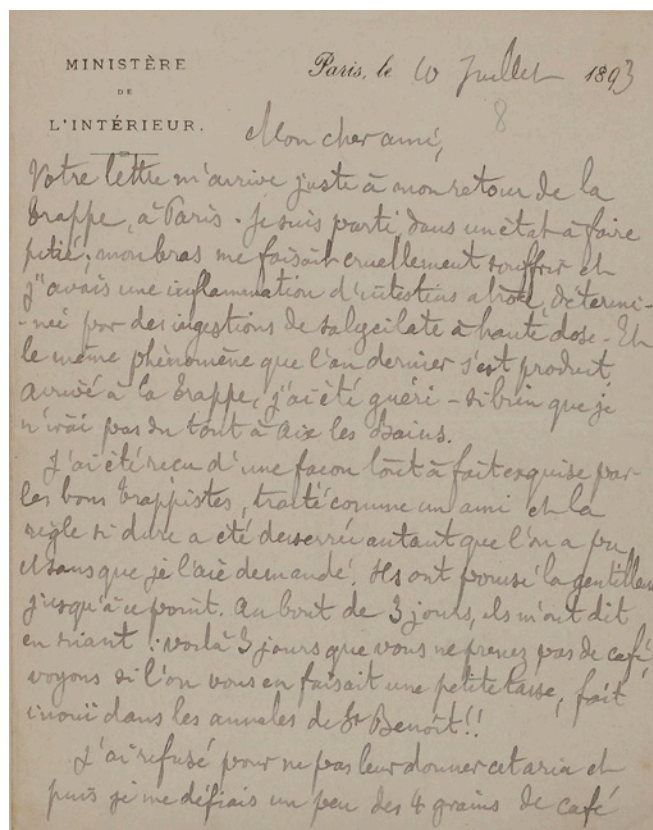 MINISTÈRE
DE
L'INTÉRIEUR.
Paris, le 10 Juillet 1893
8
Mon cher ami,
Votre lettre m'arrive juste à mon retour de la
Trappe, à Paris. Je suis parti, dans un état à faire
pitié; mon bras me faisait cruellement souffrir et
j'avais une inflammation d'intestins atroce, détermi-
-née par des ingestions de salycilate à haute dose. Et
le même phénomène que l'an dernier s'est produit,
arrivé à la Trappe, j'ai été guéri - si bien que je
n'irai pas du tout à Aix les Bains.
J'ai été reçu d'une façon tout à fait exquise par
les bons trappistes, traité comme un ami et la
règle si dure a été desserrée autant que l'on a pu
et sans que je l'aie demandé. Ils ont poussé la gentillesse
jusqu'à ce point. Au bout de 3 jours, ils m'ont dit
en riant : voilà 3 jours que vous ne prenez pas de café,
voyons si l'on vous en faisait une petite tasse, fait
inouï dans les annales de St Benoît!!
J'ai refusé pour ne pas leur donner cet aria et
puis je me défiais un peu des 4 grains de café